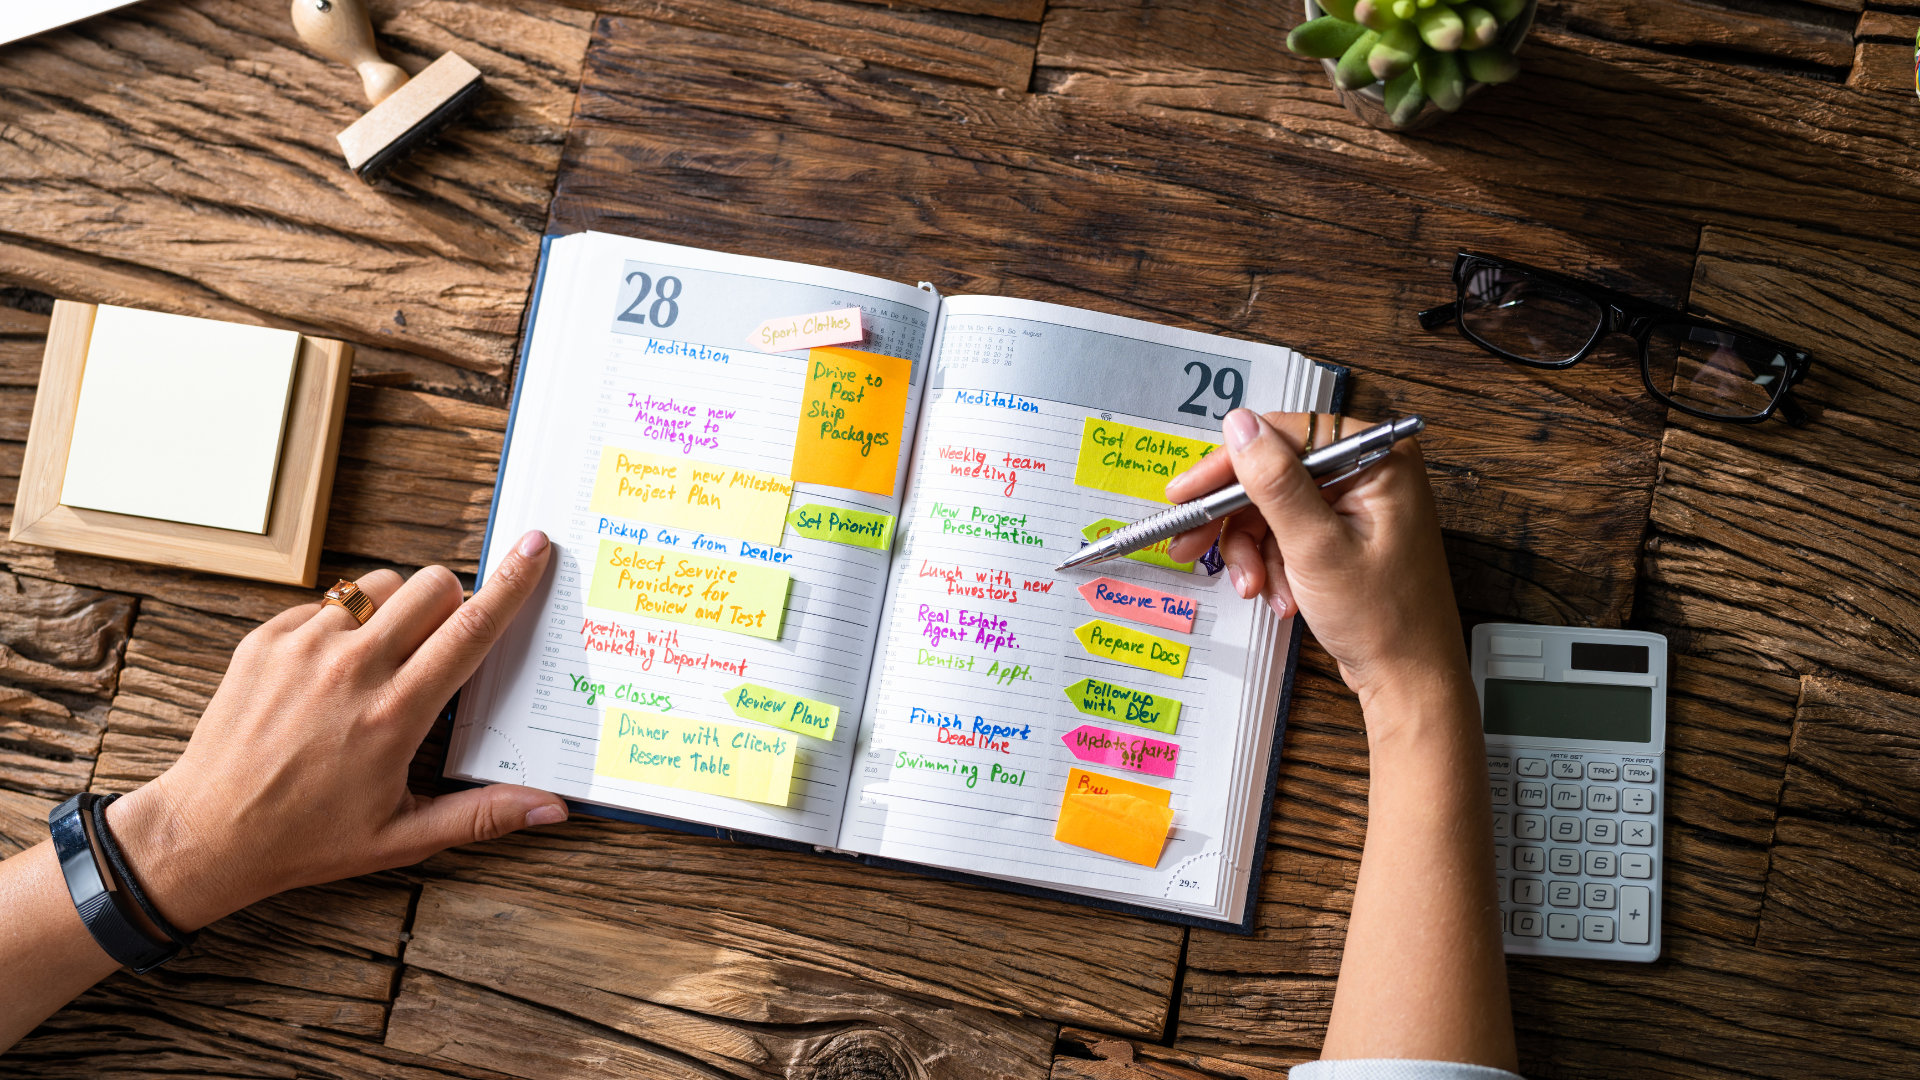 28
Sport Clothes
Meditation
Drive to
Post
Ship
Packages
Introduce new
Manager to
Colleagues
Prepare new Milestone
Project Plan
Set Prioriti
Pickup Car from Dealer
Select Service
Providers for
Review and Test
Meeting with
Marketing Department
Yoga Classes
Review Plans
Dinner with Clients
Reserve Table
Wichtig
28.7.
August
29
Meditation
Get Clothes f
Chemical
Weekly team
meeting
New Project
Presentation
Lunch with new
Investors
Reserve Table
Real Estate
Agent Appt.
Prepare Docs
Dentist Appt.
Follow up
with Dev
Finish Report
Deadline
Update Charts
!!!
Swimming Pool
Buy
29.7.
RATE SET TAX RATE
√ % TAX- TAX+
MC MR M- M+ ÷
7 8 9 ×
4 5 6 −
1 2 3 +
0 . =